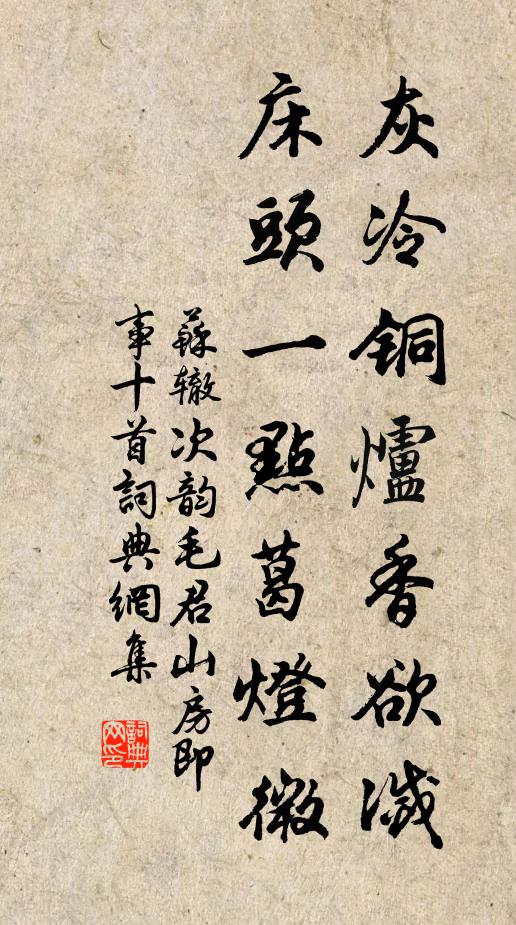 灰冷铜爐香欲滅
床頭一點葛燈微
蘇辙次韵毛君山房即
事十首詞典網集
詞典
网印